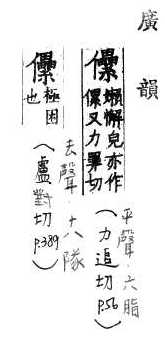 廣韻
儽 嬾懈皃亦作
傫又力罪切
平聲·六脂
(力追切 P.56)
儽 極困
也
去聲·十八隊
(盧對切 P.389)